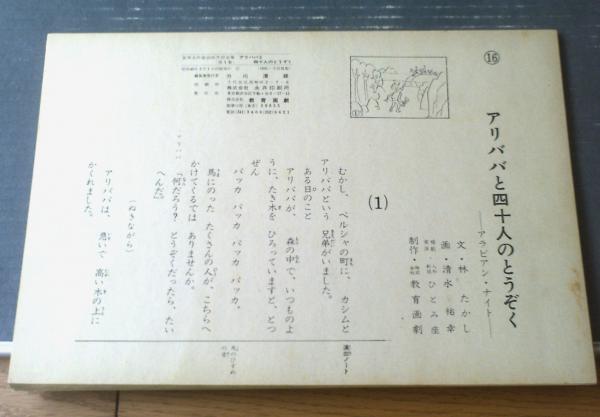 ⑯
アリババと四十人のとうぞく
―アラビアン・ナイト―
文・林 たかし
画・清水 祐幸
ひとみ座
制作・教育画劇
(1)
むかし、ペルシャの町に、カシムと
アリババという 兄弟がいました。
ある日のこと
アリババが、 森の中で、いつものよ
うに、たき木を ひろっていますと、とつ
ぜん
パッカ パッカ パッカ パッカ。
馬にのった たくさんの人が、こちらへ
かけてくるでは ありませんか。
アリババ
「何だろう? とうぞくだったら、たい
へんだ」
(ぬきながら)
アリババは、 急いで 高い木の上に
かくれました。
演出ノート
馬のひずめ
の音
アリババと
四十人のとうぞく
株式会社 教育画劇